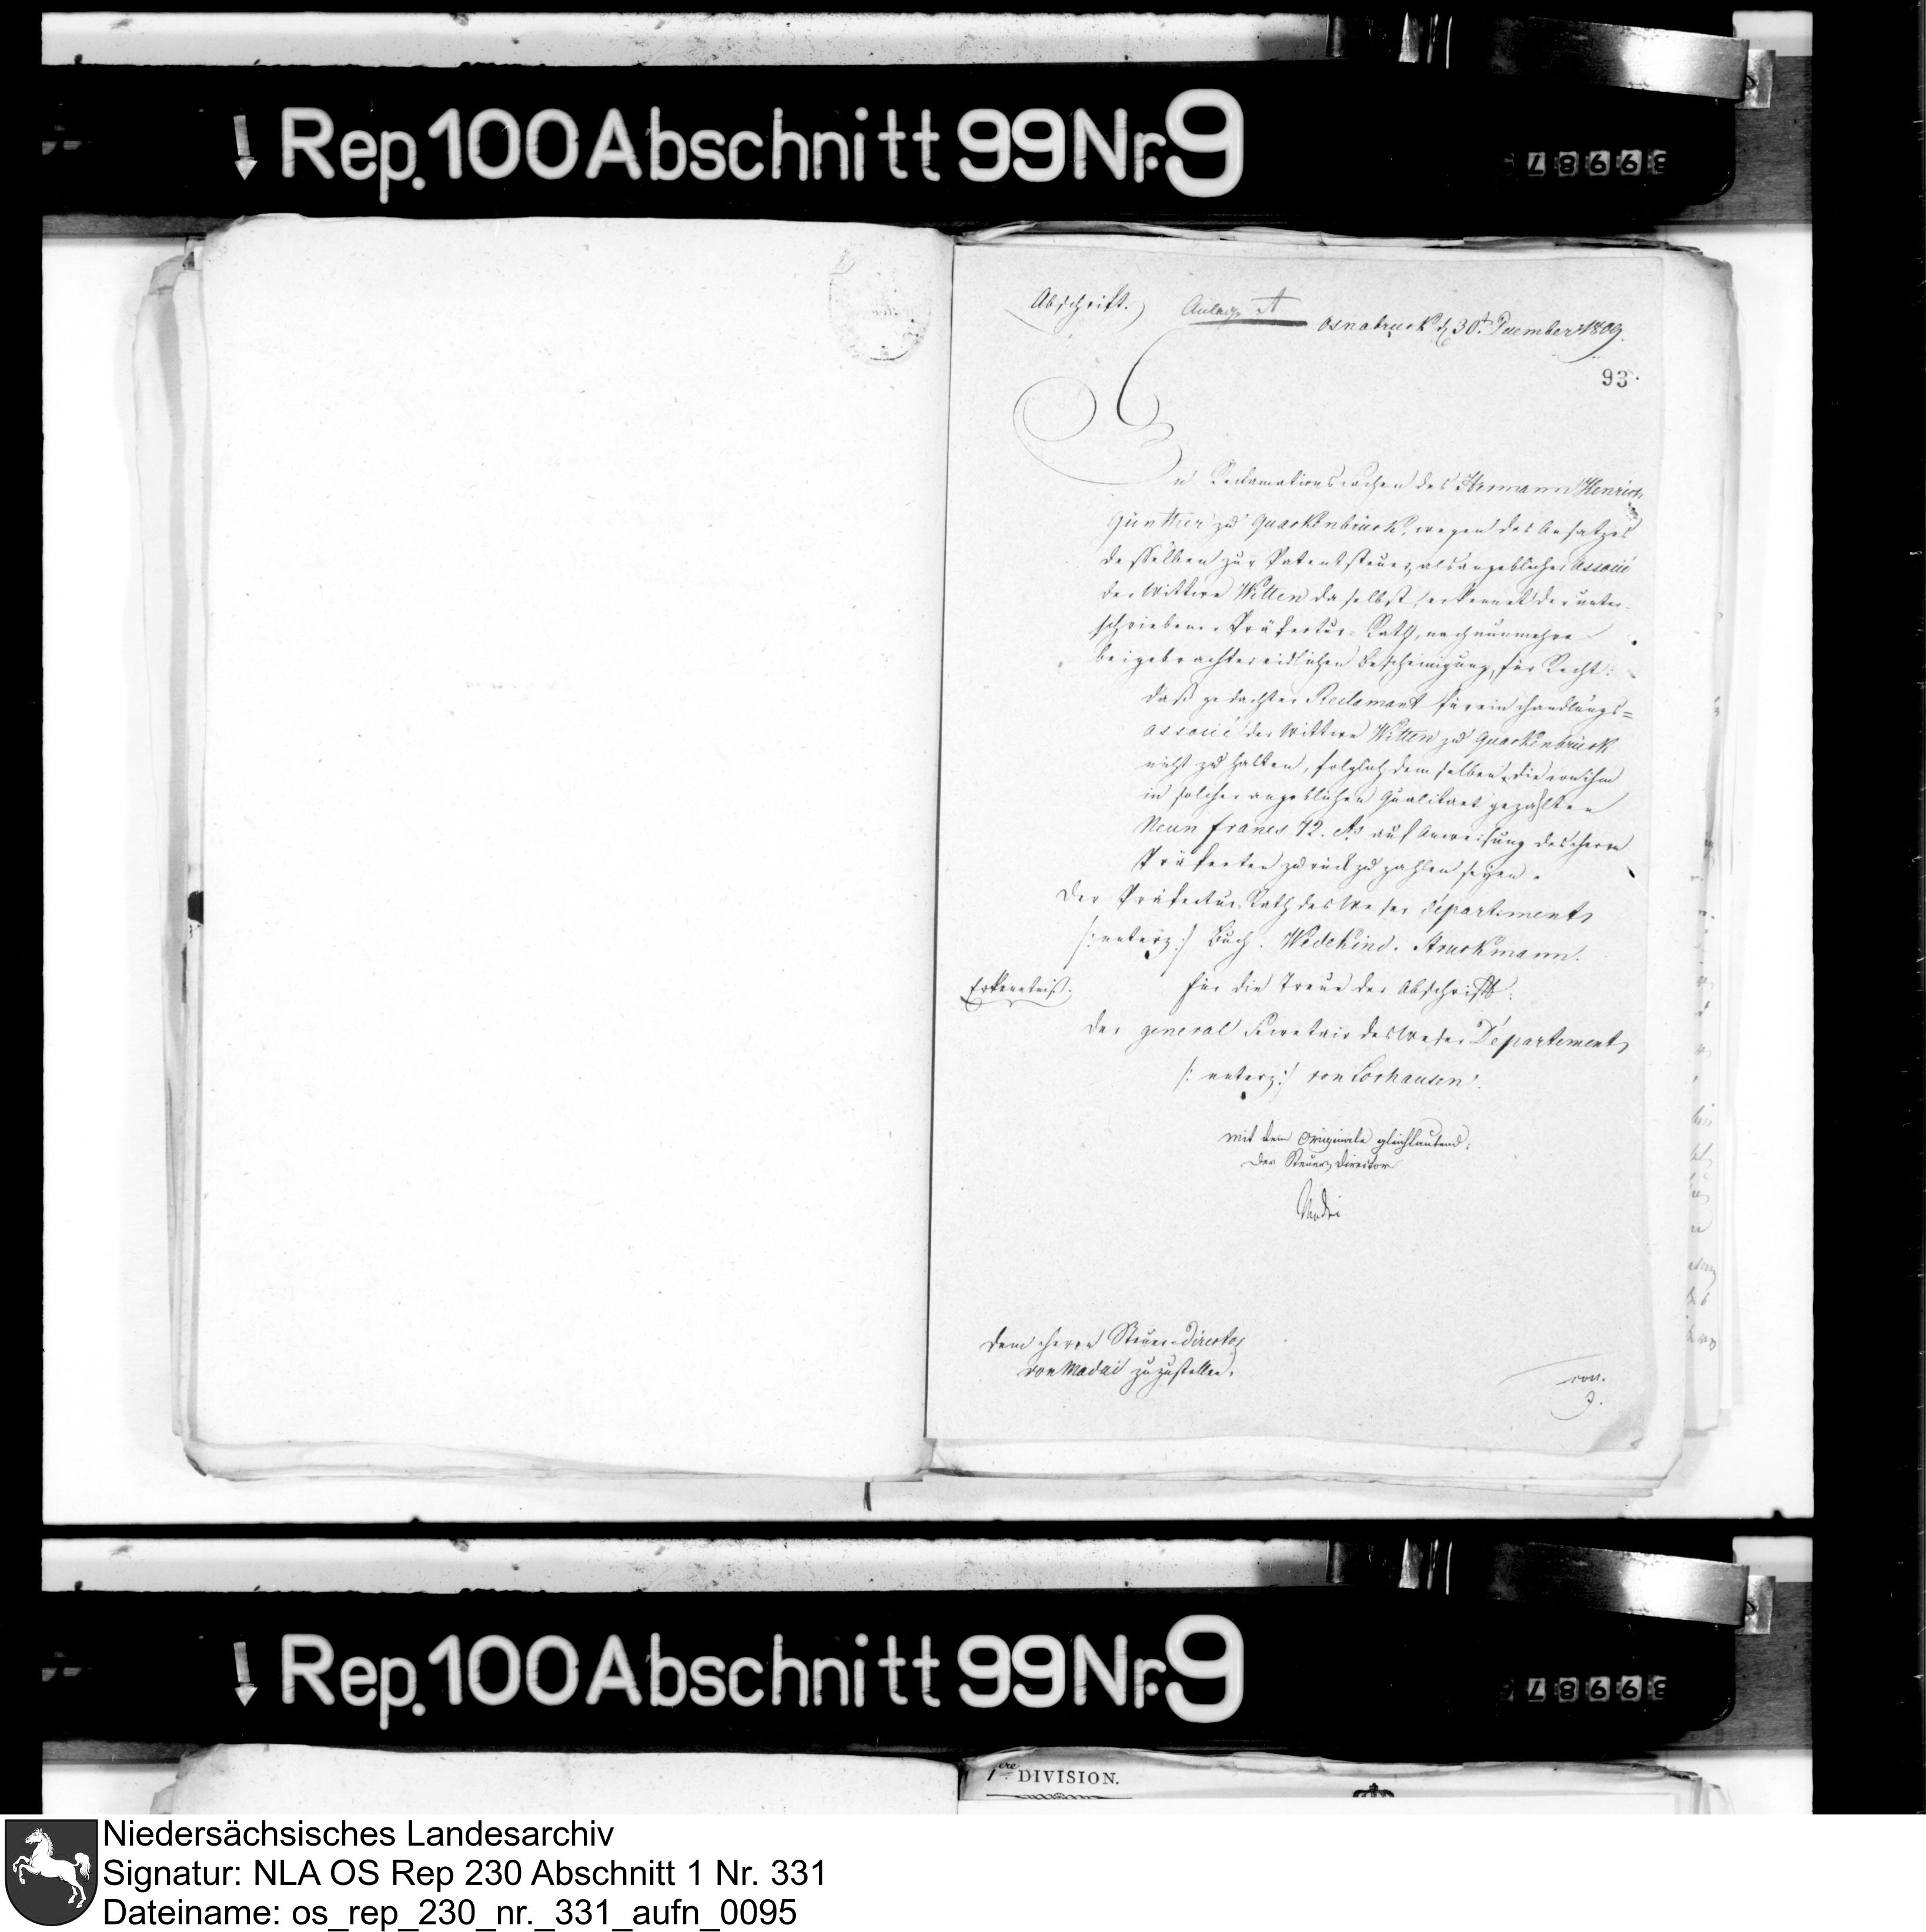 Rep. 100 Abschnitt 99 Nr. 9
39987
Abschrift.) Anlage A
Osnabruck d 30t. December 1809.
93.
In Reclamationssachen des Hermann Henrich
Günther zu Quackenbrück, wegen des Ansatzes
desselben zur Patentsteuer, als angeblicher Associé
der Wittwe Witten daselbst, erkennet der unter-
schriebene Präfectur-Rath, nach nunmehro
beigebrachter eidlichen Bescheinigung, für Recht:
daß gedachter Reclamant für ein Handlungs=
associé der Wittwe Witten zu Quackenbrück
nicht zu halten, folglich demselben die von ihm
in solcher angeblichen Qualitaet gezahlten
Neun Francs 72. Cts auf Anweisung des Herrn
Präfecten zurückzuzahlen seyen.
Der Präfectur Rath des Weser départements
/: unterz :/ Buch. Wedekind. Struckmann.
Erkenntniß.
für die Treue der Abschrift:
der general Secretair des Weser Départements
/: unterz :/ von Lochausen.
mit dem Originale gleichlautend:
Der Steuer, Director
Madai
Dem Herrn Steuer-Director
von Madai zuzustellen.
Rep. 100 Abschnitt 99 Nr. 9
39987
1ere DIVISION.
Niedersächsisches Landesarchiv
Signatur: NLA OS Rep 230 Abschnitt 1 Nr. 331
Dateiname: os_rep_230_nr._331_aufn_0095